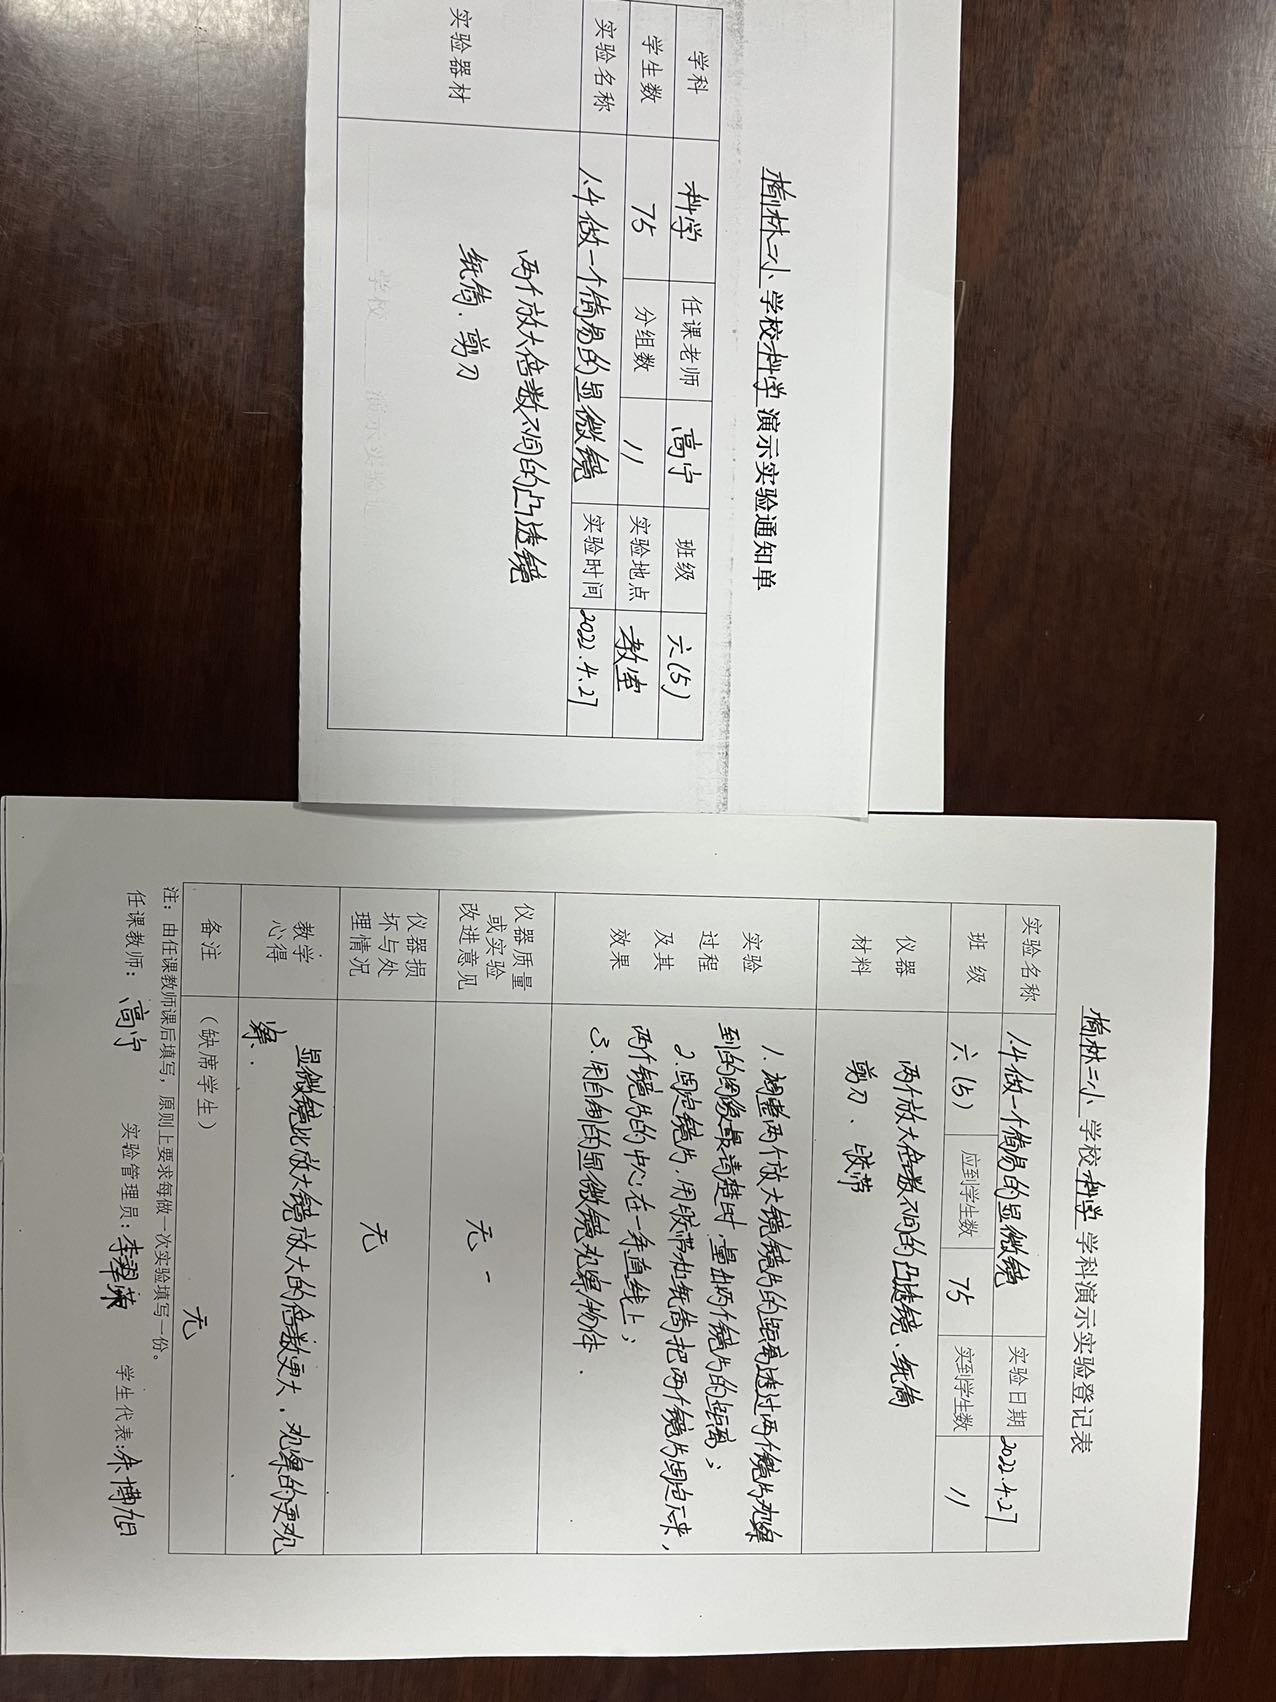 榆林二小学校科学演示实验通知单
学科 科学 任课老师 高宁 班级 六(5)
学生数 75 分组数 11 实验地点 教室
实验名称 1.4做一个简易的显微镜 实验时间 2022.4.27
实验器材
两个放大倍数不同的凸透镜
纸筒、剪刀
学校 演示实验
榆林二小学校科学学科演示实验登记表
实验名称 1.4做一个简易的显微镜 实验日期 2022.4.27
班级 六(5) 应到学生数 75 实到学生数 11
仪器材料
两个放大倍数不同的凸透镜、纸筒
剪刀、胶带
实验过程及其效果
1.调整两个放大镜镜片的距离透过两个镜片观察
到的图像最清楚时,量出两个镜片的距离;
2.固定镜片,用胶带和纸筒把两个镜片固定下来,
两个镜片的中心在一条直线上;
3.用自制的显微镜观察物体.
仪器质量或实验改进意见 无
仪器损坏与处理情况 无
教学心得
显微镜比放大镜放大的倍数更大,观察的更
备注 (缺席学生) 无
注:由任课教师课后填写,原则上要求每做一次实验填写一份。
任课教师:高宁 实验管理员:李翠荣 学生代表:朱博旭